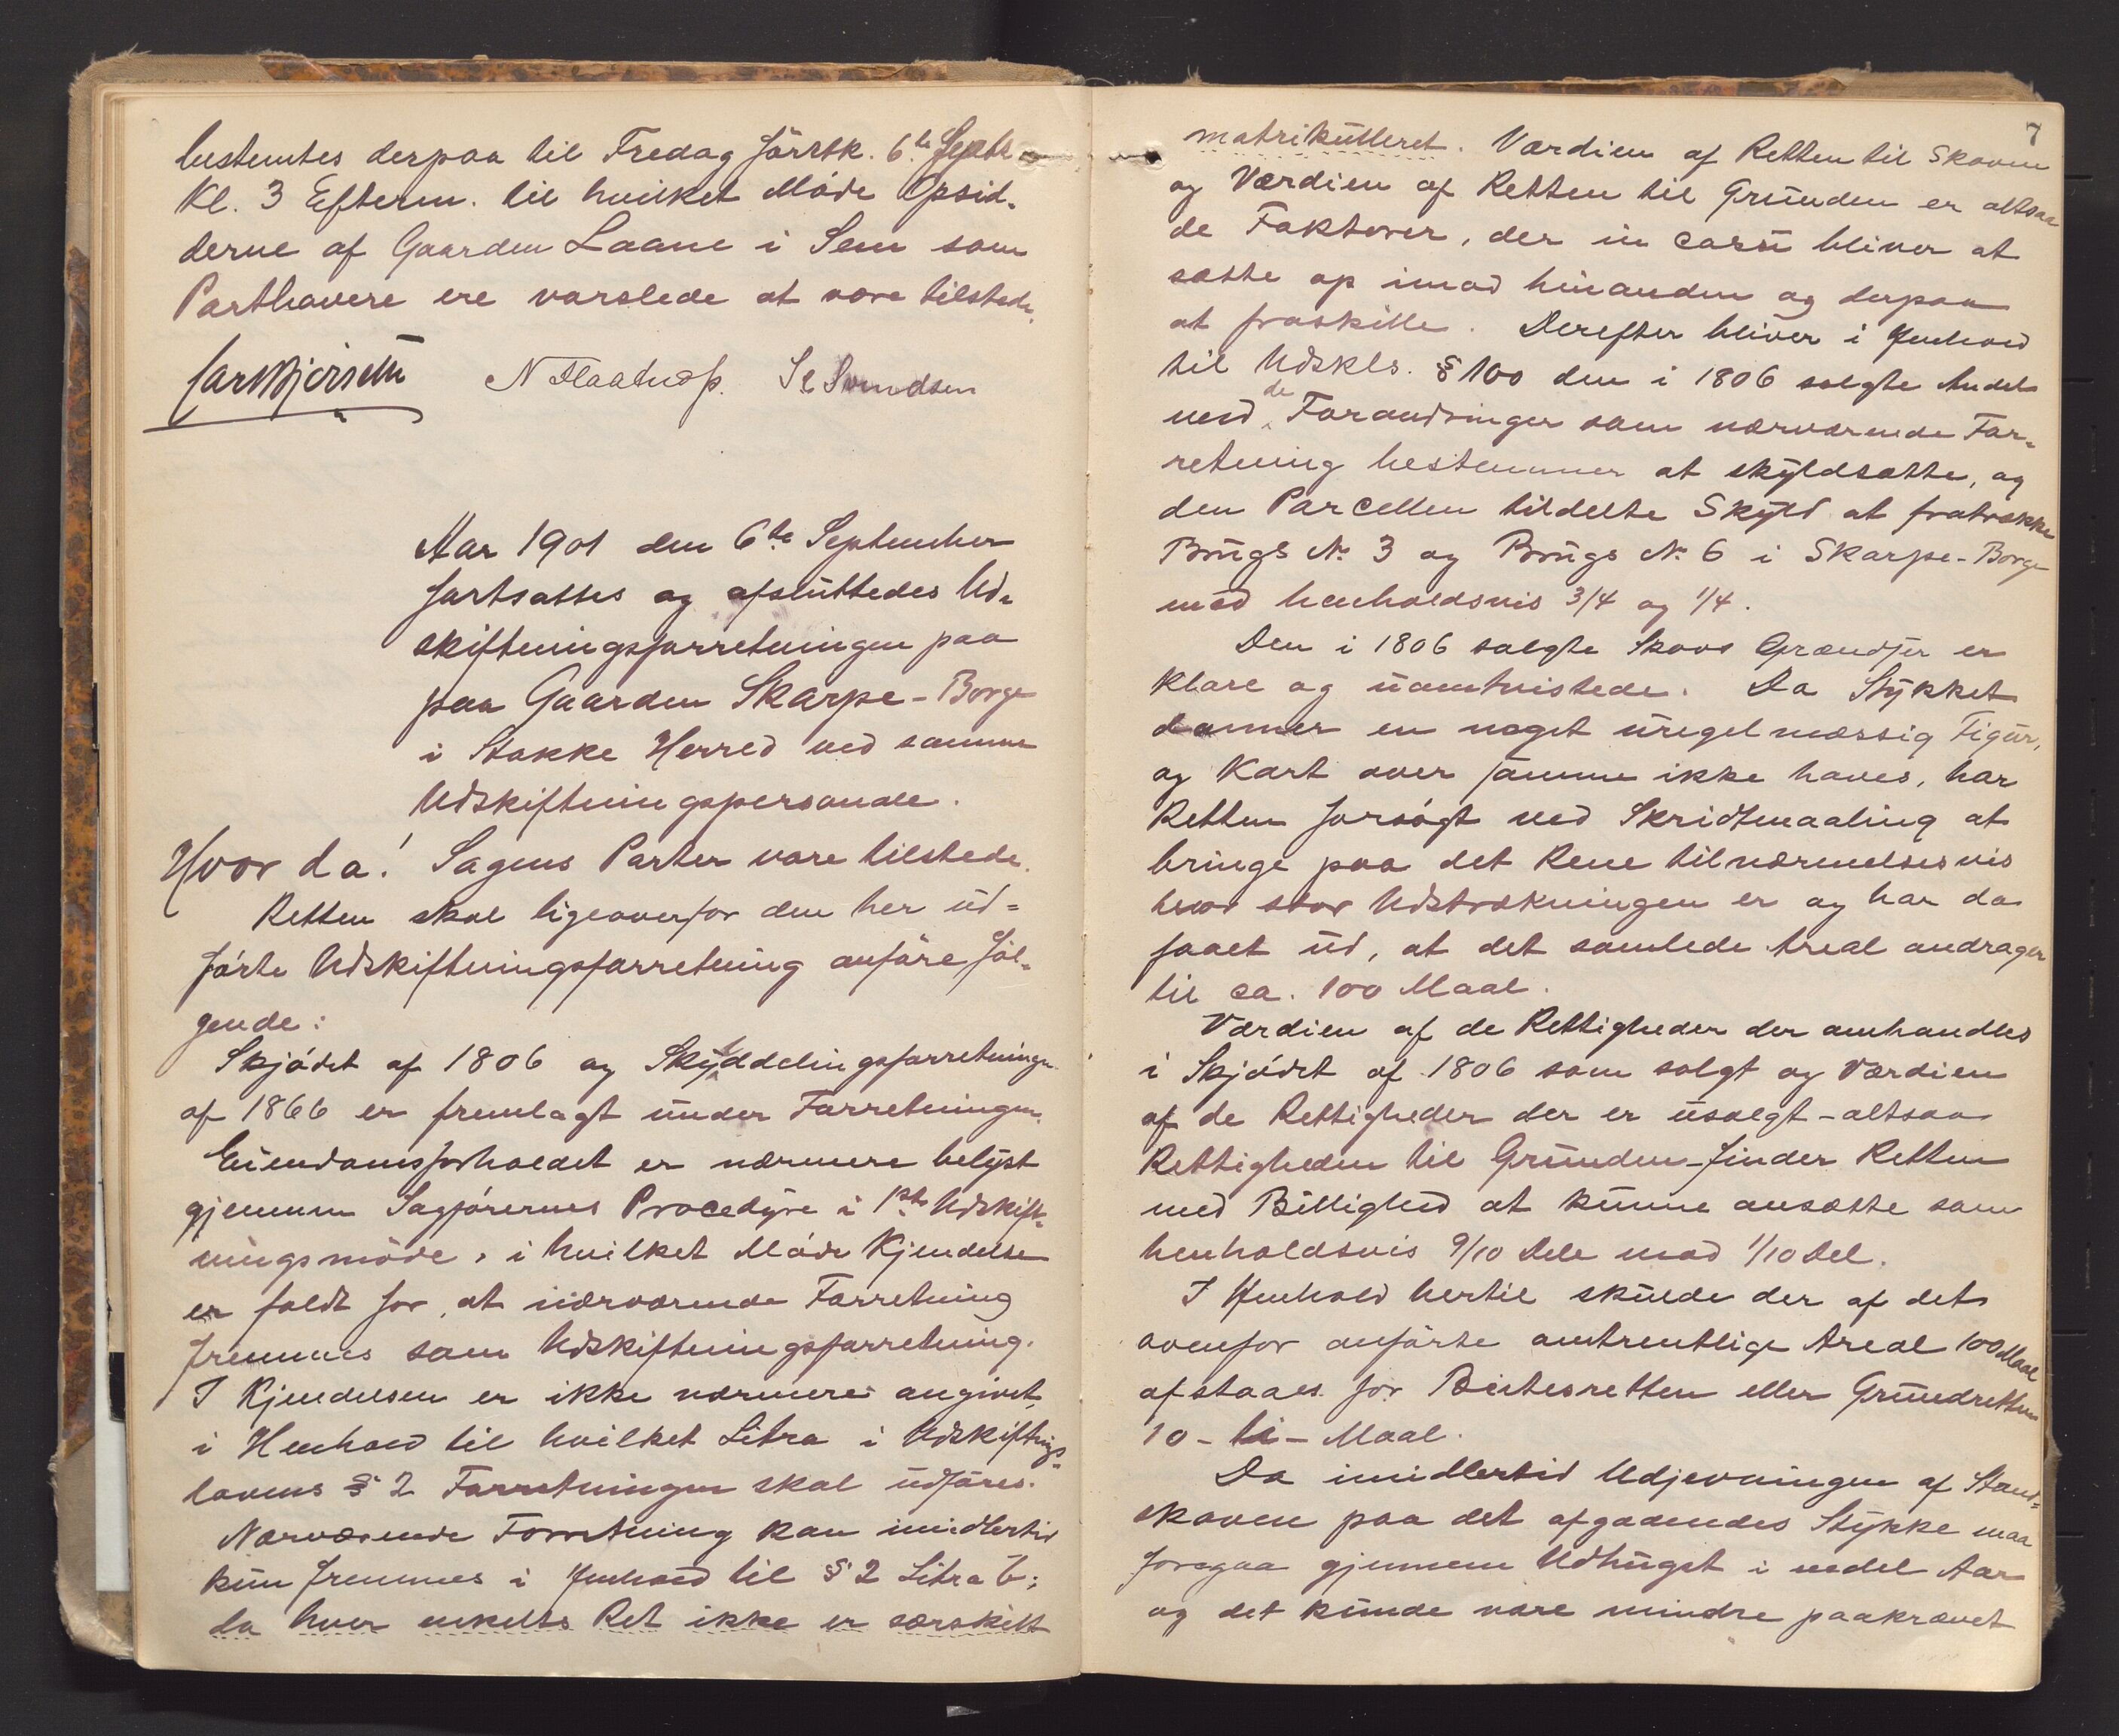 bestemtes derpaa til Fredag förstk. 6.te Septbr
Kl. 3 Efterm. til hvilket Möde Opsid-
derne af Gaarden Laane i Sem som
Parthavere ere varslede at være tilstede.
N Flaatnes p. Se Svendsen
Aar 1901 den 6te September
fortsattes og afsluttedes Ud-
skiftningsforretningen paa
paa Gaarden Skarpe-Borge
i Stokke Herred ved samme
Udskiftningspersonale.
Hvor da! Sagens Parter vare tilstede.
Retten skal ligeoverfor den her ud-
förte Udskiftningsforretning anföre föl-
gende:
Skjödet af 1806 og Skylddelingsforretningen
af 1866 er fremlagt under Forretningen.
Eiendomsforholdet er nærmere belyst
gjennem Sagförernes Procedyre i 1ste Udskift-
ningsmöde, i hvilket Möde Kjendelse
er faldt for, at nærværende Forretning
fremmes som Udskiftningsforretning.
I Kjendelsen er ikke nærmere angivet,
i Henhold til hvilket Litra i Udskiftnings-
lovens § 2 Forretningen skal udföres.
Nærværende Forretning kan imidlertid
kun fremmes i Henhold til § 2 Litra b;
da hver enkelts Ret ikke er særskilt
7
matrikulleret. Værdien af Retten til Skoven
og Værdien af Retten til Grunden er altsaa
de Faktorer, der in casu bliver at
sætte op imod hinanden og derpaa
at fraskille. Derefter bliver i Henhold
til Udskls. § 100 den i 1806 solgte Andel
med de Forandringer som nærværende For-
retning bestemmer at skyldsætte, og
den Parcellen tildelte Skyld at fratrække
Brugs No 3 og Brugs No 6 i Skarpe-Borge
med henholdsvis 3/4 og 1/4.
Den i 1806 solgte Skovs Grændser er
klare og uomtvistede. Da Stykket
danner en noget uregelmæssig Figur,
og Kart over samme ikke haves, har
Retten forsögt ved Skridtmaaling at
bringe paa det Rene tilnærmelsesvis
hvor stor Udstrækningen er og har da
faaet ud, at det samlede Areal andrager
til ca. 100 Maal.
Værdien af de Rettigheder der omhandles
i Skjödet af 1806 som solgt og Værdien
af de Rettigheder der er usolgt - altsaa
Rettigheden til Grunden - finder Retten
med Billighed at kunne ansætte som
henholdsvis 9/10 Dele mod 1/10 Del.
I Henhold hertil skulde der af det
ovenfor anförte omtrentlige Areal 100 Maal
afstaaes for Beitesretten eller Grundretten
10 - ti - Maal.
Da imidlertid Udjevningen af Stand-
skoven paa det afgaaendes Stykke maa
foregaa gjennem Udhugst i endel Aar
og det kunde være mindre paakrævet